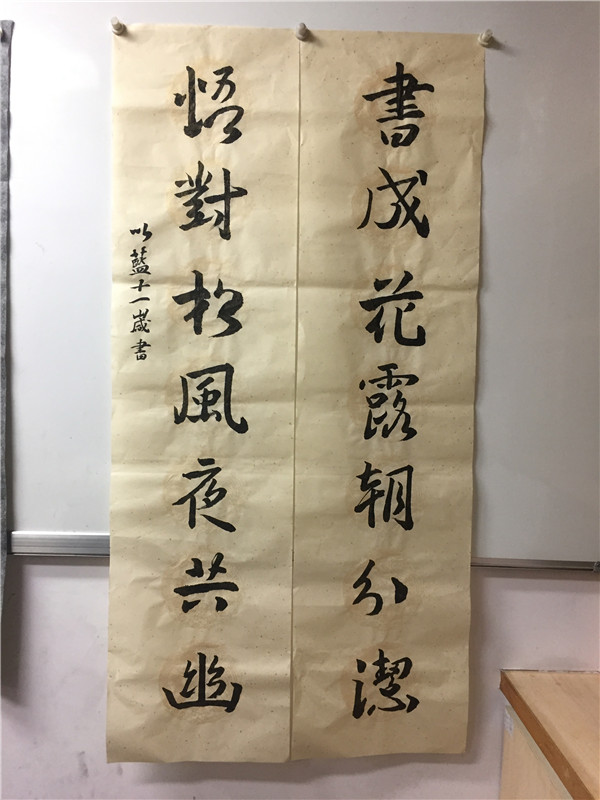 書成花露朝分潔
悟對松風夜共幽
以藍十一歲書